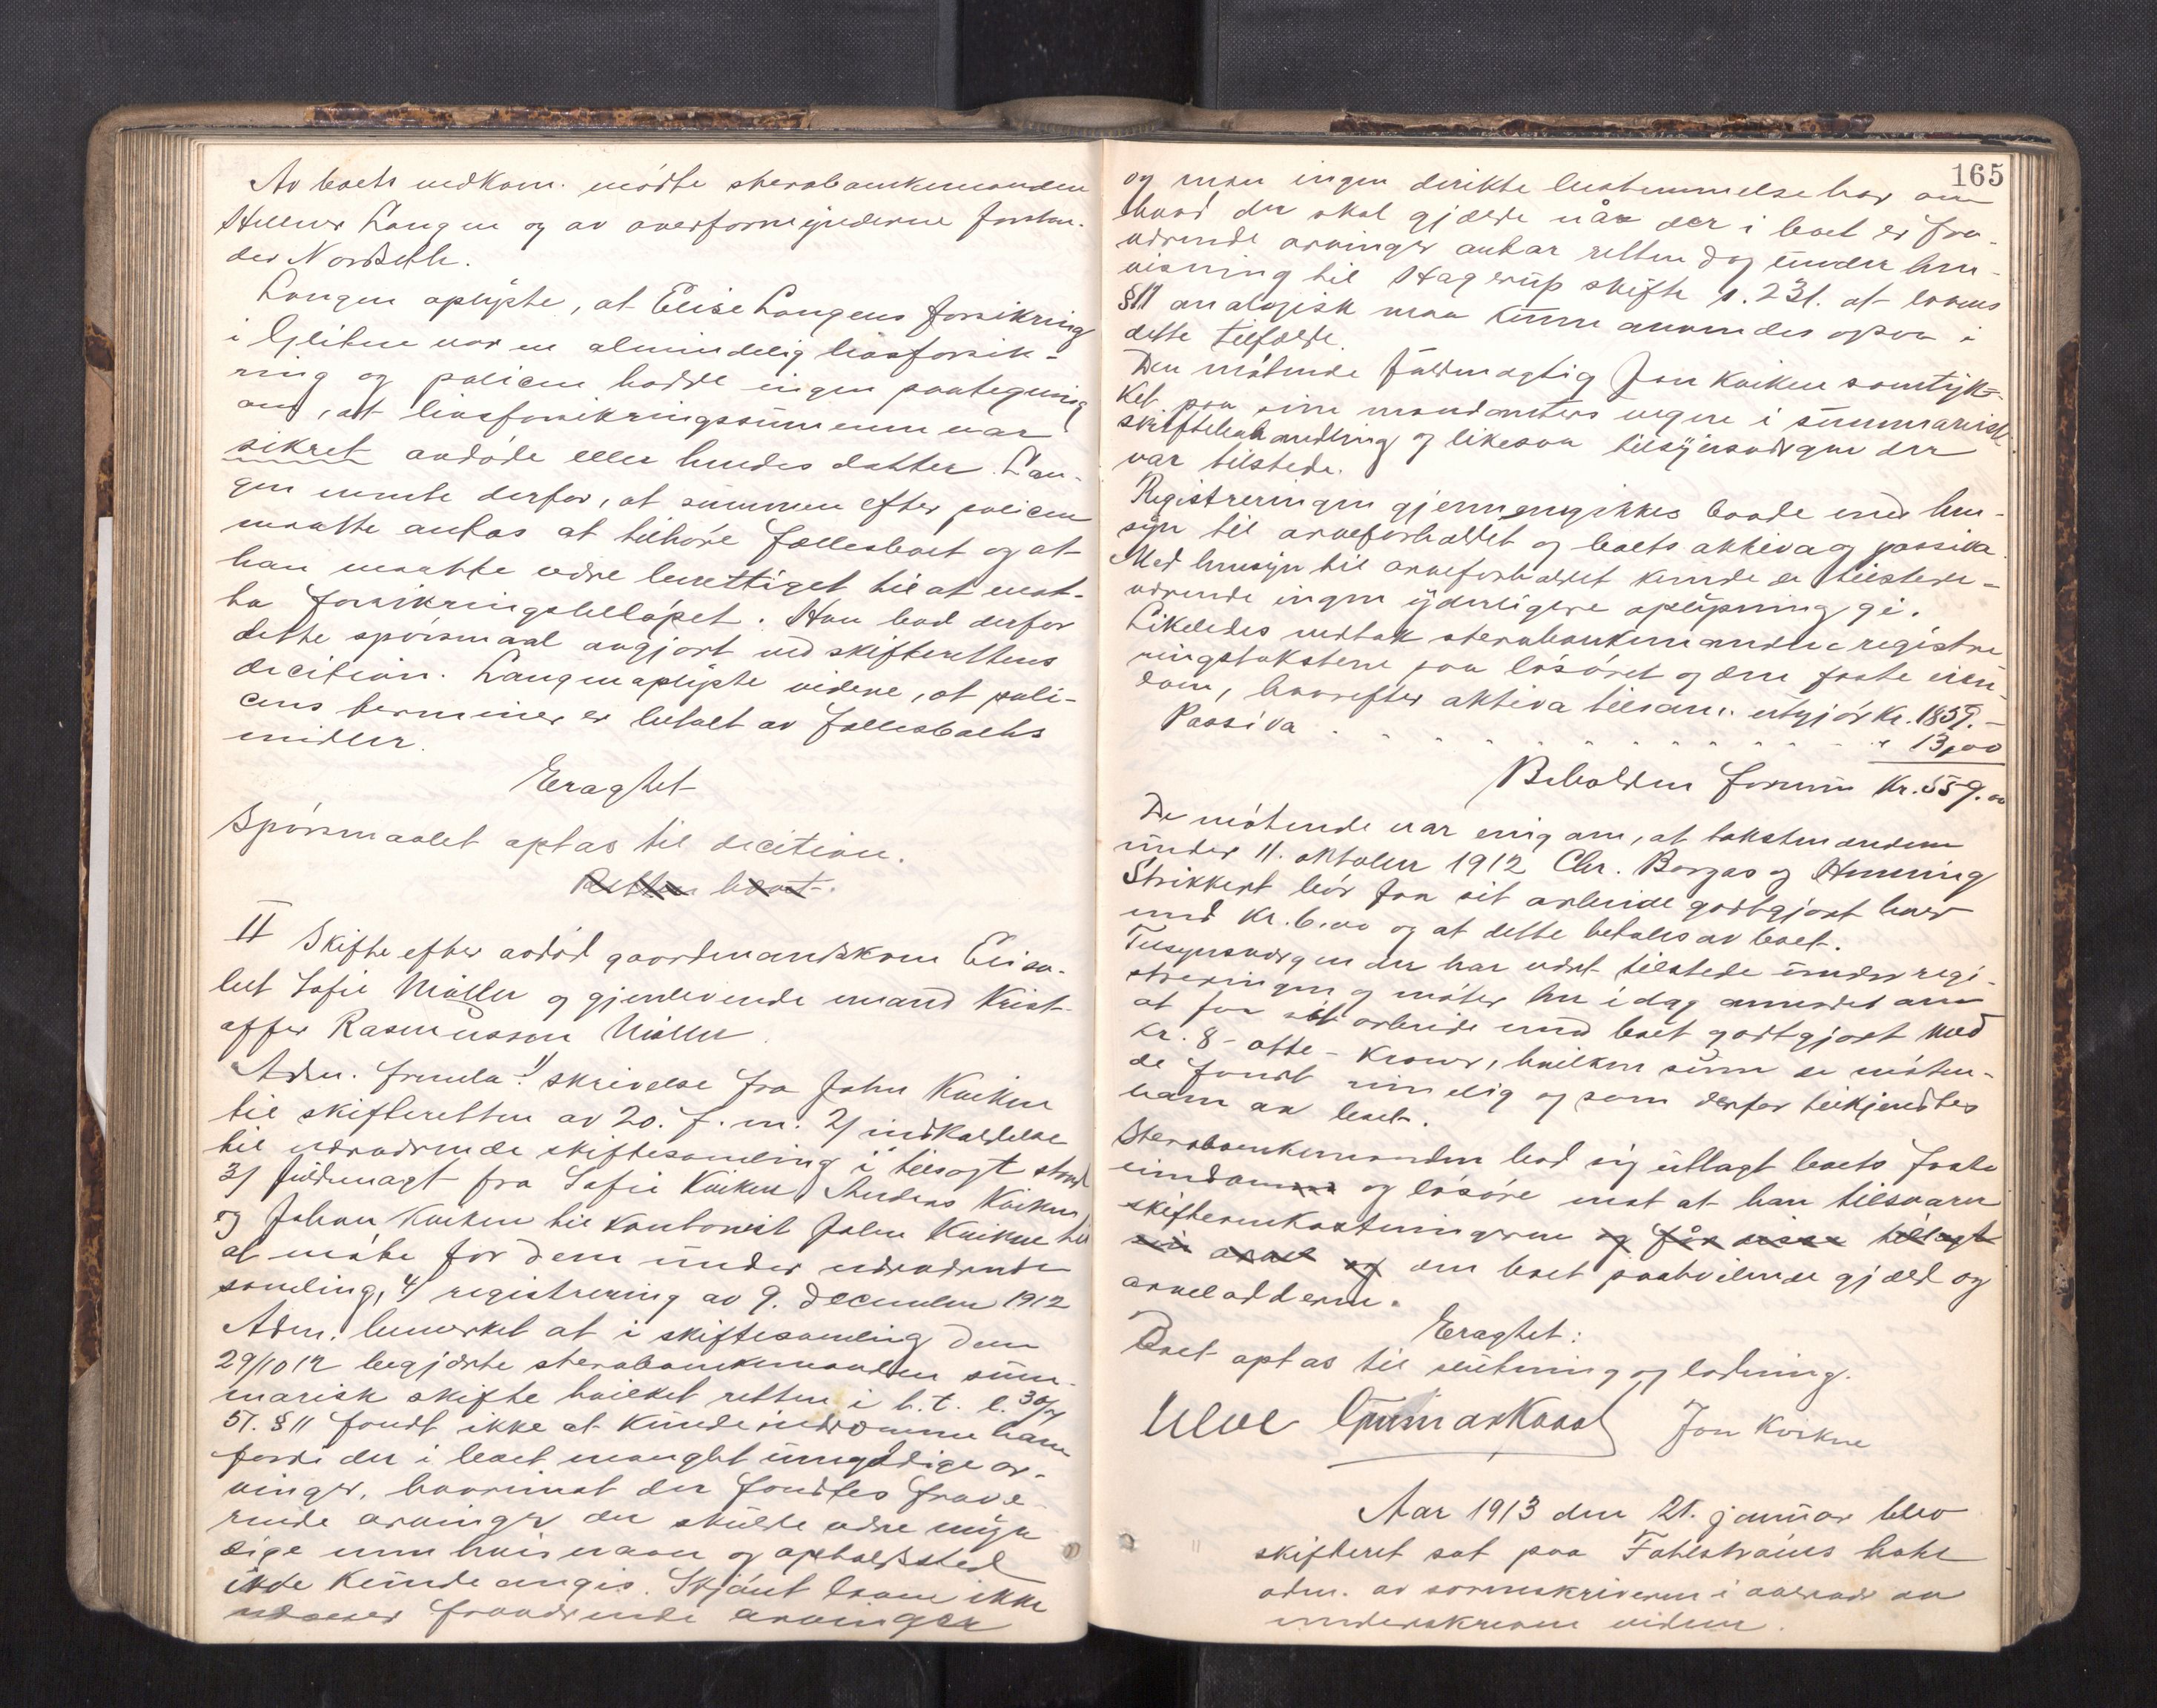 Av boets vedkom. mødte sterbboenkemanden
Hilmer Langen og av overformynderne forstan-
der Nordseth.
Langen oplyste, at Elise Langens forsikring
i Gjensidige var en almindelig livsforsik-
ring og policen hadde ingen paategning
om, at livsforsikringssummen var
sikret avdøde eller hendes datter. Lan-
gen mente derfor, at summen efter policen
maatte antas at tilhøre fællesboet og at
han maatte være berettiget til at mot-
ta forsikringsbeløpet. Han bad derfor
dette spørsmaal avgjort ved skifterettens
decition. Langen oplyste videre, at poli-
cens terminer er betalt av fællesboets
midler.
Eragtet
Spørsmaalet optas til decition.
Retten hævet.
II Skifte efter avdød gaardmandskone Elisa-
bet Sofie Møller og gjenlevende mand Krist-
offer Rasmusson Møller.
Adm. fremla: 1/ skrivelse fra John Kvikne
til skifteretten av 20. f. m. 2/ indkaldelse
til nærværende skiftesamling i tilsagt stand
3/ fuldmagt fra Sofie Kvikne, Anders Kvikne,
og Johan Kvikne til kontorist John Kvikne til
at møte for dem under nærværende
samling, 4/ registrering av 9. december 1912
Adm. bemerket at i skiftesamling den
29/10 12 begjærte sterbboenkemanden sum-
marisk skifte hvilket retten i h.t. l. 30/7
51. § 11 fandt ikke at kunde indrømme ham
fordi der i boet manglet umyndige ar-
vinger, hvorimot der fandtes fravæ-
rende arvinger der skulde være myn-
dige men hvis navn og opholdssted
ikke kunde angis. Skjønt loven ikke
nævner fraværende arvinger
165
og man ingen direkte bestemmelse har om
hvad der skal gjælde når der i boet er fra-
værende arvinger antar retten dog under hen-
visning til Hagerup skifte s. 231. at lovens
§ 11 analogisk maa kunne anvendes ogsaa i
dette tilfælde.
Den møtende fuldmægtig Jon Kvikne samtyk-
ket paa sine mandanters vegne i summarisk
skiftebehandling og likesaa tilsynsværgen der
var tilstede.
Registreringen gjennemgikkes baade med hen-
syn til arveforholdet og boets aktiva og passiva.
Med hensyn til arveforholdet kunde de tilstede-
værende ingen yderligere oplysning gi.
Likeledes vedtok sterbboenkemanden registre
ringstakstene paa løsøret og den faste eien-
dom, hvorefter aktiva tilsam. utgjør Kr. 1859.-
Passiva . . . . . . . . . . . . " 13,00
Beholden formue Kr. 559.00
De møtende var enig om, at takstmændene
under 11. oktober 1912 Chr. Borgas og Henning
Strikkert bør faa sit arbeide godtgjort hver
med Kr. 6.00 og at dette betales av boet.
Tilsynsværgen der har været tilstede under regi-
streringen og møter her idag anmodet om
at faa sit arbeide med boet godtgjort med
Kr. 8 - otte - Kroner, hvilken sum de møten-
de fandt rimelig og som derfor tilkjendtes
ham av boet.
Sterbboenkemanden bad sig utlagt boets faste
eiendomme og løsøre mot at han tilsvarer
skifteomkostningerne og får disse tillagt
sin arve og den boet paahvilende gjæld og
arveloddene.
Eragtet:
Boet optas til slutning og lodning.
Jon Kvikne
Aar 1913 den 21. januar blev
skifteret sat paa Fahlstrøms hotel
adm. av sorenskriveren i overvær av
underskrevne vidne.